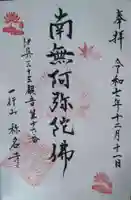 奉拝
令和七年十二月一日
南無阿弥陀佛
伊興三十三観音第十六番
一行山
称名寺